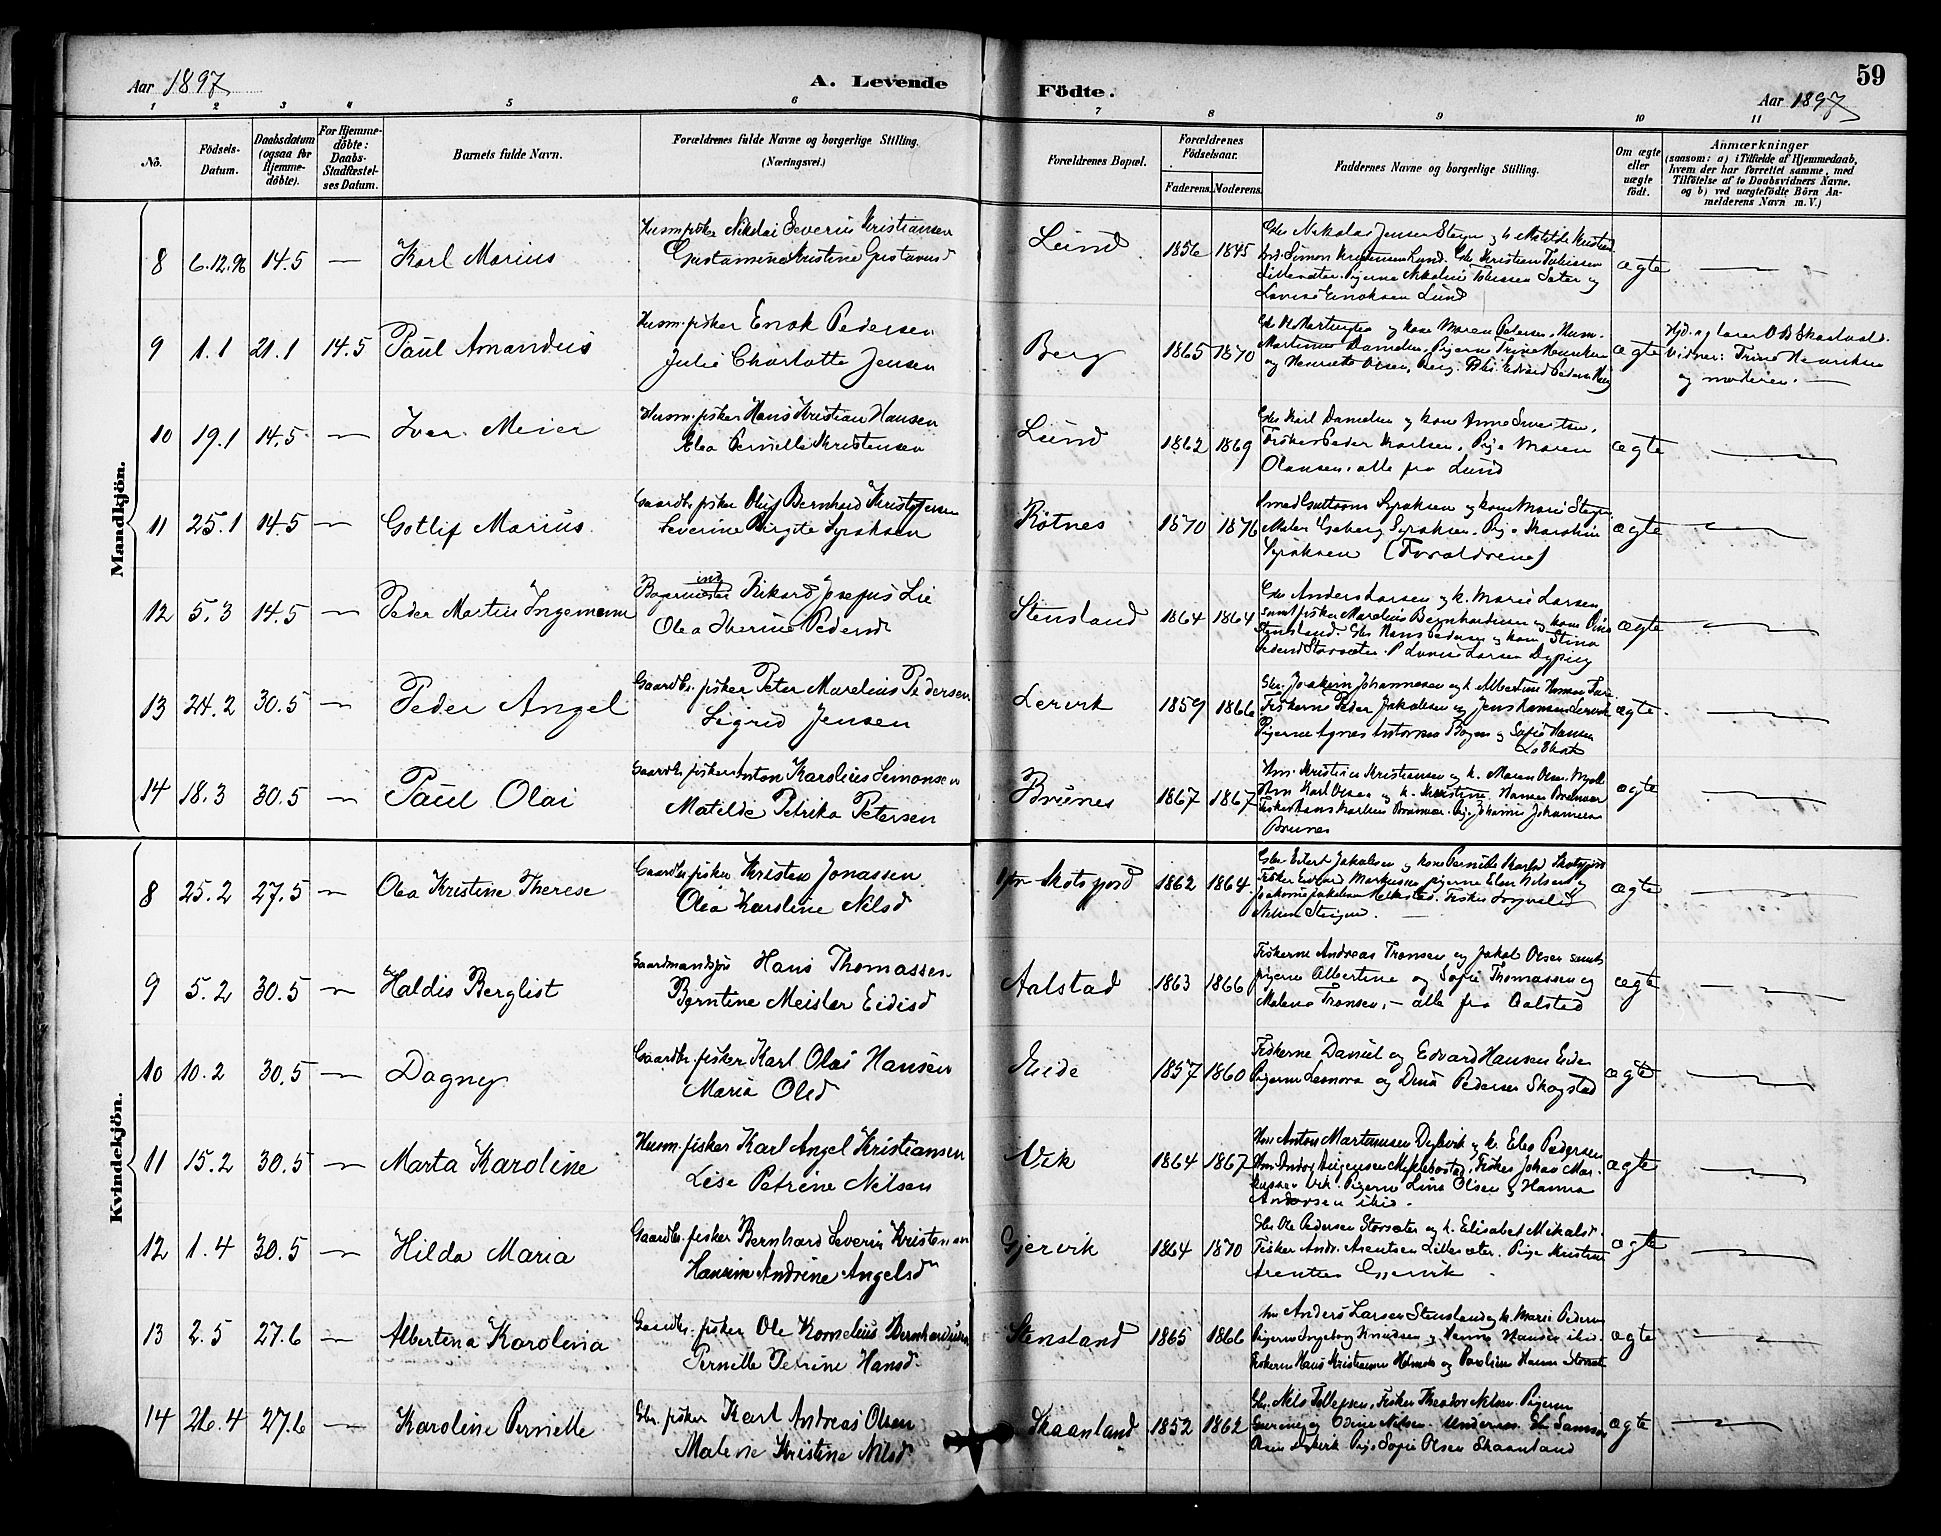 Aar 1897
A. Levende
Födte.
59
Aar 1897
1 2 3 4 5 6 7 8 9 10 11
No.
Födsels-Datum.
Daabsdatum (ogsaa for Hjemme-döbte).
For Hjemme-döbte: Daabs-Stadfæstel-ses Datum.
Barnets fulde Navn.
Forældrenes fulde Navne og borgerlige Stilling.
(Næringsvei.)
Forældrenes Bopæl.
Forældrenes Födselsaar.
Faderens. Moderens.
Faddernes Navne og borgerlige Stilling.
Om ægte eller uægte födt.
Anmærkninger
(saasom: a) i Tilfælde af Hjemmedaab,
hvem der har forrettet samme, med
Tilföielse af to Daabsvidners Navne,
og b) ved uægtefödte Börn An-
melderens Navn m. V.)
Mandkjön.
8 6.12.96 14.5 — Karl Marius
Husm. fisker Nikolai Severin Kristiansen
Gustamine Kristine Gustavsd
Lund 1856 1845
Simon Kristensen Lund. Gbr. Kristian Tobiassen
Lillesæter. Pigerne Nikoline Tobiassen Sæter og
Lovise Enoksen Lund
ægte —
9 1.1 21.1 14.5 Paul Amandus
Husm. fisker Enok Pedersen
Julie Charlotte Jensen
Berg 1865 1870
og kone Maren Pedersen, Husm.
Martinus Danielsen, Pigerne Trine Henriksen
og Henriette Olsen, Berg.
ægte
Hjd. af lærer O B Skarlund.
Vidner: Trine Henriksen
og moderen. —
10 19.1 14.5 — Iver Meier
Husm. fisker Hans Kristian Hansen
Elea Pernille Kristensen
Lund 1862 1869
Gbr Karl Danielsen og kone Anne Sivertsen,
Fisker Peder Karlsen, Pige Maren
Olausen, alle fra Lund
ægte —
11 25.1 14.5 — Gotlif Marius
Gaardbr. fisker Oluf Bernhard Kristofersen
Severine Birgte Syraksen
Røtnes 1870 1876
Smed Guttorm Syraksen og kone Marie Steigen
Maler Syraksen. Pige Karoline
Syraksen (Forældrene)
ægte —
12 5.3 14.5 — Peder Martin Ingemann
Rikard Josefus Lie
Olea Iberine Pedersd
Stensland 1864 1864
Gbr Anders Larsen og k. Marie Larsen
samt fisker Marelius Bernhardsen og kone
Stensland. Gbr Hans Pedersen og kone Stina
Pedersd Storsæter. P Lovise Larsen Dyping
ægte —
13 24.2 30.5 — Peder Angel
Gaardbr. fisker Peter Marelius Pedersen
Sigrid Jensen
Lervik 1859 1866
Gbr. Joakim Johannesen og k. Albertine Hansen
Fiskerne Peder Jakobsen og Jens Hansen Lervik
Pigerne Agnes Antonsen Bogen og Sofie Hansen
ægte. —
14 18.3 30.5 — Paul Olai
Gaardbr. fisker Anton Karolius Simonsen
Matilde Petrika Petersen
Brunes 1867 1867
Hm. Kristian Kristiansen og k. Maren Olsen
Hm Karl Olsen og k. Kristine Hansen
Pige Johanne Johansen
Brunes
ægte —
Kvindekjön.
8 25.2 27.5 — Olea Kristine Therese
Gaardbr. fisker Kristen Jonassen
Olea Karoline Nilsd
Skotsfjord 1862 1864
Gbr Edert Jakobsen og kone Pernille
Fisker Edvard Markussen pigerne Elen Nilsen og
Nilsen Steigen.
ægte —
9 5.2 30.5 — Haldis Berglist
Gaardmandsføn Hans Thomassen
Berntine Meisler Eidisd
Aalstad 1863 1866
Fiskerne Andreas Tronsen og Jakob Olsen samt
pigerne Albertine og Sofie Thomassen og
Malena Tronsen, — alle fra Aalstad
ægte —
10 10.2 30.5 — Dagny
Gaardbr. fisker Karl Olai Hansen
Maria Olsd
Eide 1857 1860
Fiskerne Daniel og Edvard Hansen Eide
Pigerne Leonora og Dina Pedersen Skogstad
ægte —
11 15.2 30.5 — Marta Karoline
Husm. fisker Karl Angel Kristiansen
Lise Petrine Nilsen
Vik 1864 1867
Hm Anton Martinusen Dybvik og k. Elea Pedersen
Hm Andor Jørgensen Myklebostad. Fisker Johan Mar-
kussen Vik. Pigerne Lina Olsen og Hanna
Andorsen ibid.
ægte —
12 1.4 30.5 — Hilda Maria
Gaardbr. fisker Bernhard Severin Kristensen
Hansine Andrine Angelsd
Gjervik 1864 1870
Gbr Ole Pedersen Storsæter og k. Elisabet Mikalsd.
Fisker Andr. Arentsen Lillesæter. Pige Kristine
Arentsen Gjervik
ægte —
13 2.5 27.6 — Albertina Karolina
Gaardbr. fisker Ole Kornelius Bernhardsen
Pernille Petrine Hansd.
Stensland 1865 1866
Hm Anders Larsen Stensland og k. Marie Pedersen
Pigerne Ingeborg Knudsen og Hanna Hansen ibid.
Fiskerne Hans Kristiansen Holmok og Pauline Hansen Storsæter
ægte —
14 26.4 27.6 — Karoline Pernille
Gbr. fisker Karl Andreas Olsen
Malene Kristine Nilsd.
Skaanland 1852 1862
Gbr. Nils Tollefsen, Fisker Theodor Nilsen. Pigerne
og Odine Nilsen. Gb Samson
Pige Sofie Olsen Skaanland
ægte —